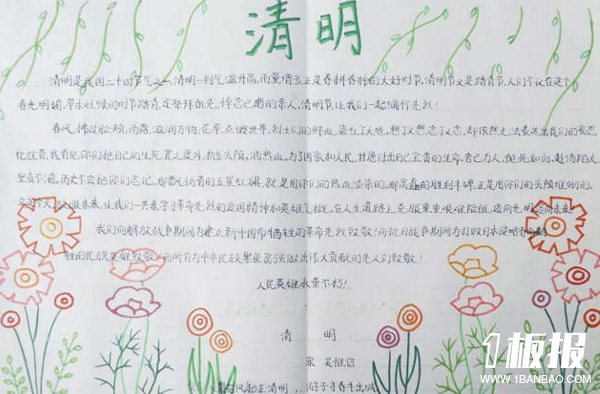 清明
清明是我国二十四节气之一,清明一到气温升高,雨量增多正是春耕春种的大好时节,清明节又是踏青节,人们不仅在这个
春光明媚,草木吐绿的时节踏青,还祭拜祖先,悼念已逝的亲人,清明节,让我们一起缅怀先烈!
春风,拂过脸颊,雨露,滋润万物,花草,点缀世界,烈士们的鲜血,染红了大地,想了又想,念了又念,却依然无法表达出我们的哀思,
忆往昔,我看见你们把自己的生死,置之度外,抛头颅,洒热血,为了国家和人民,甘愿付出自己宝贵的生命,舍己为人,视死如归,赴汤蹈火
历史不会把你们忘记,那飘扬着的五星红旗,就是用你们的热血染来的,那高矗的胜利丰碑正是用你们的头颅堆砌的,
让我们一共来学习革命先烈的爱国精神和英雄气概,在人生道路上,克服重重艰难险阻,迈向光明迈向未来
我们向解放战争期间为建立新中国而牺牲的革命先烈致敬!向抗日战争期间为打败日本侵略者
牲的民族英雄致敬!向所有为中华民族繁荣富强做出伟大贡献的先人们致敬!
人民英雄永垂不朽!
清 明
宋 吴惟信
清明,
好子寻春出城
1板报
WWW.1BANBAO.COM